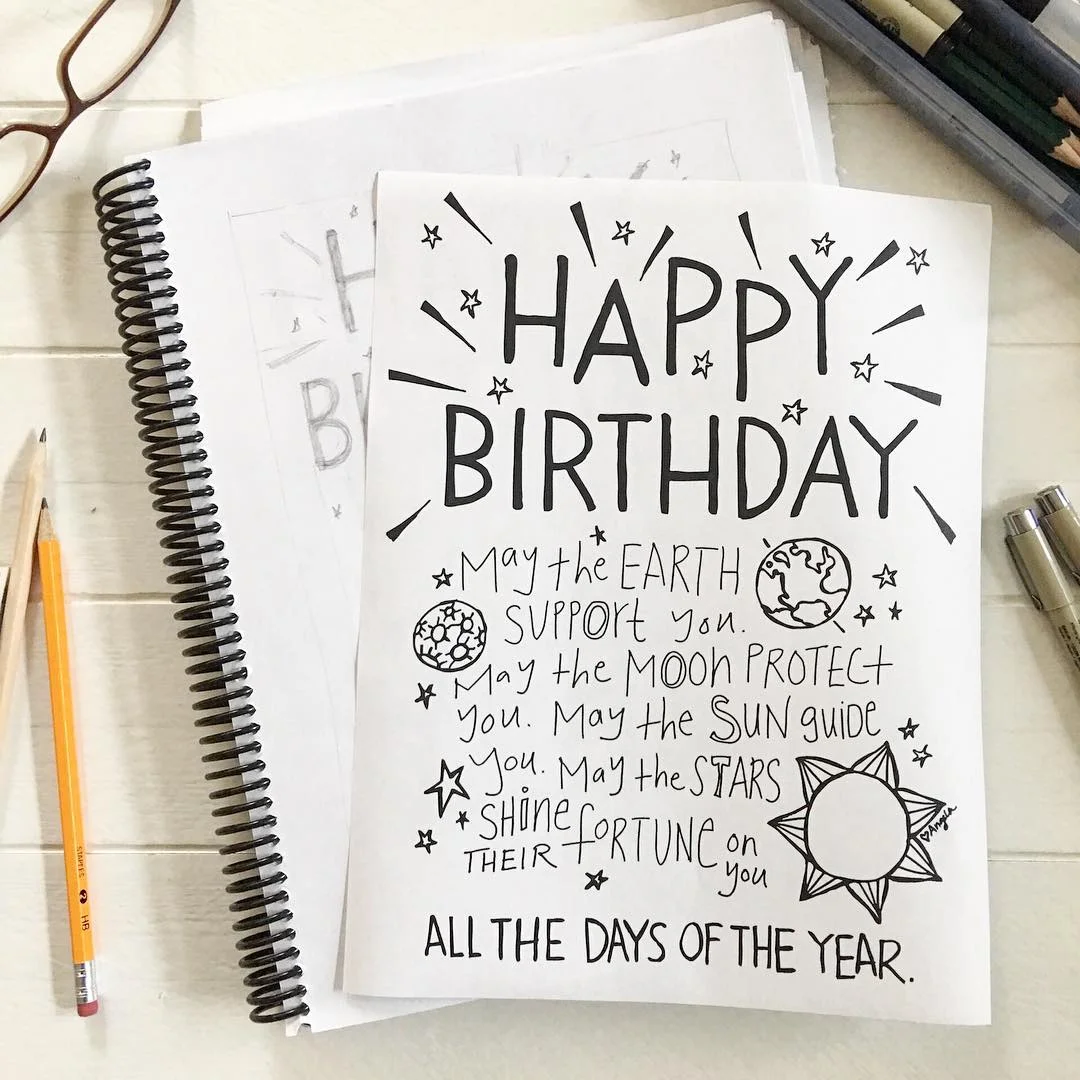 HAPPY
BIRTHDAY
May the EARTH
SUPPORT you.
May the MOOn PROTECt
you. May the SUN guide
you. May the STARS
SHiNe
THEIR fORTUNe on
you
ALL THE DAYS OF THE YEAR.
Angela
H
BI
STAPLES 2 HB